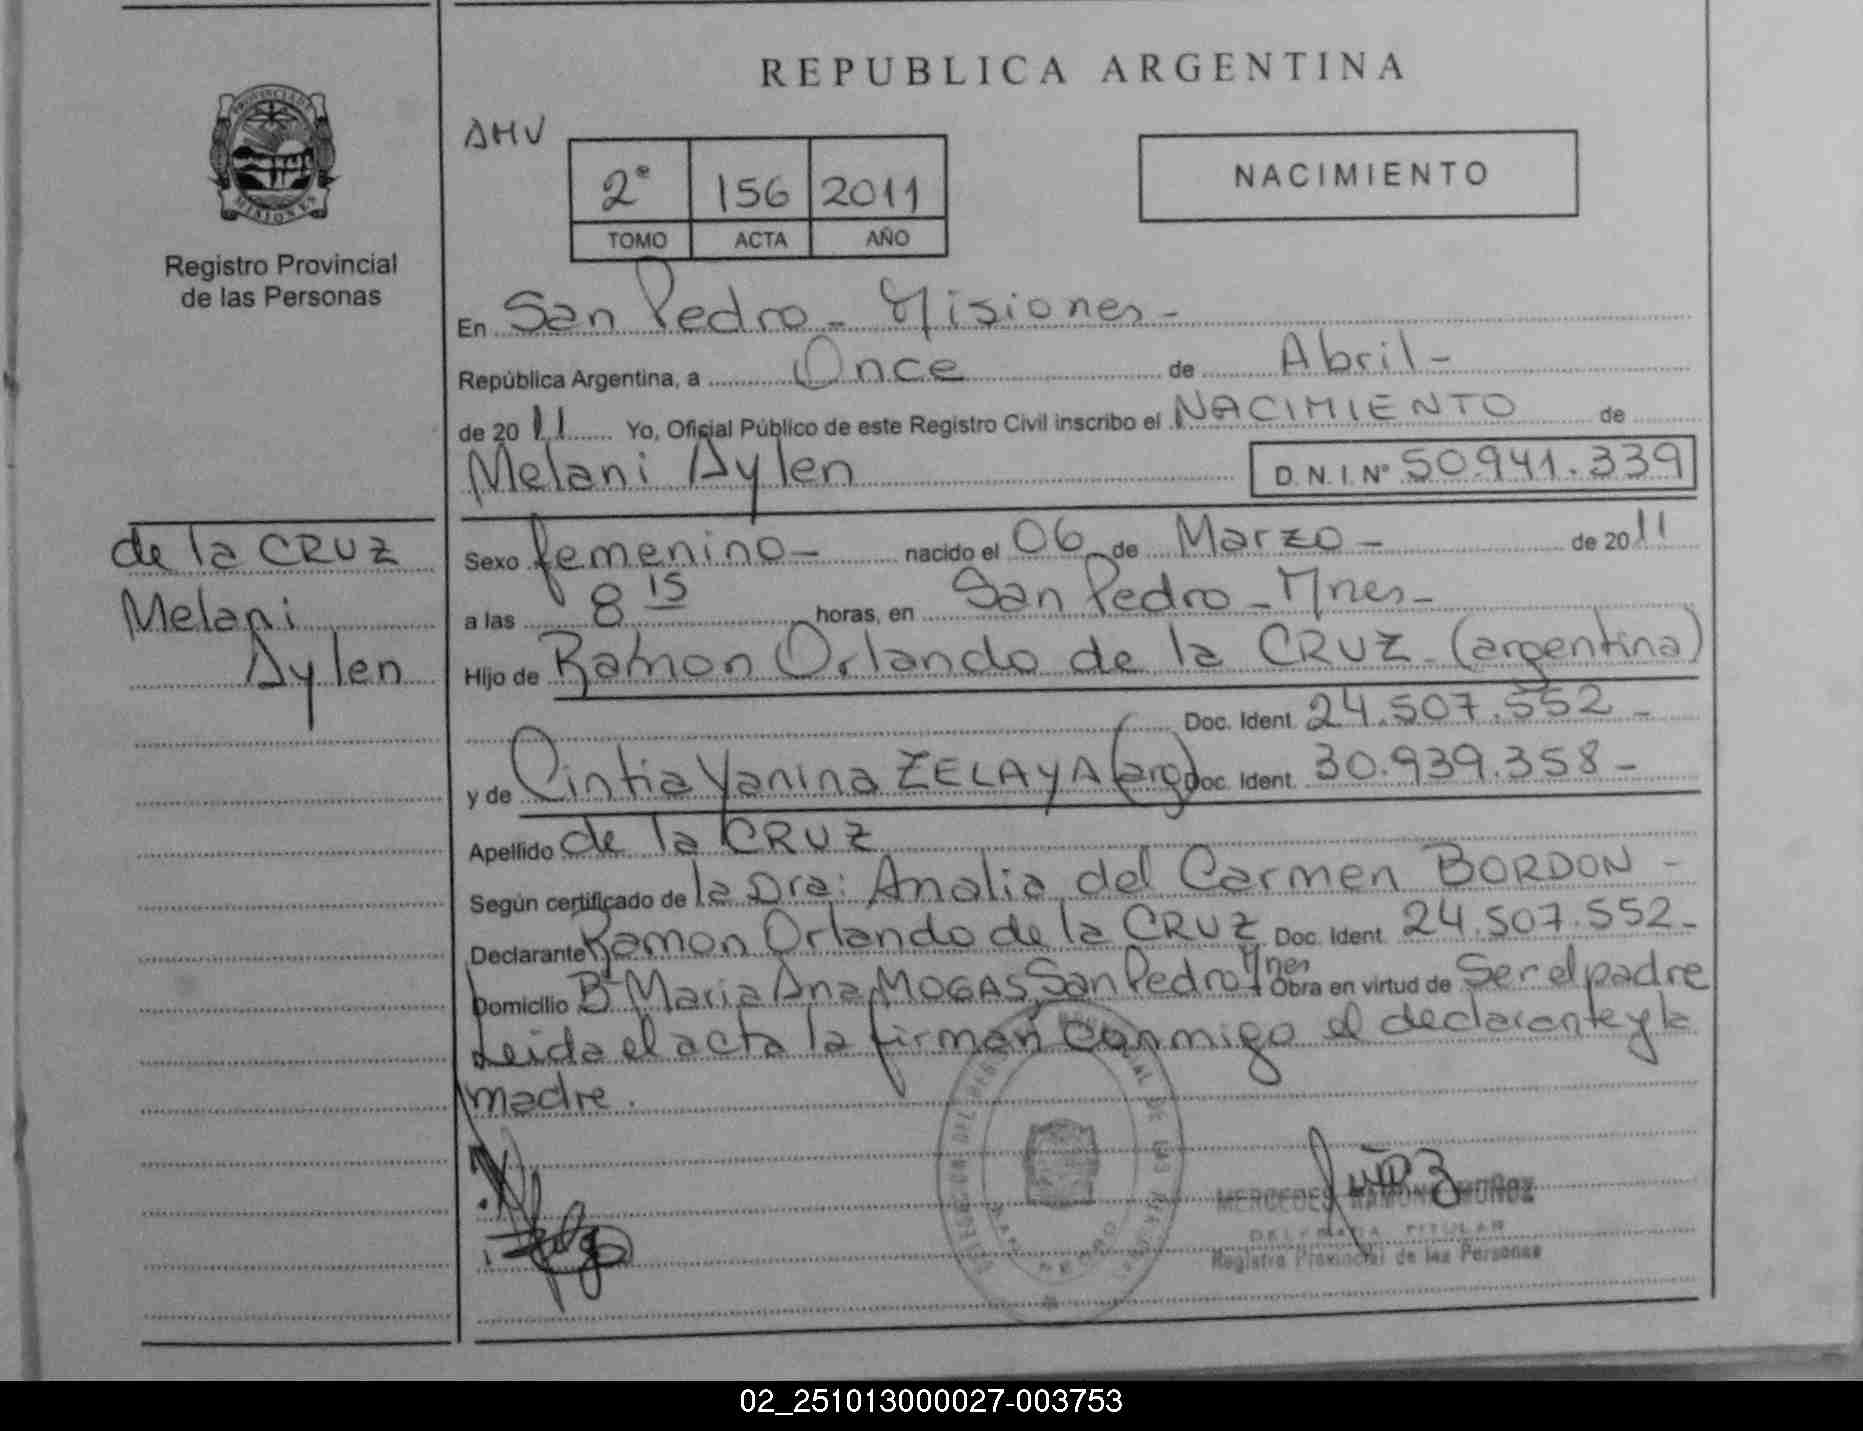 REPUBLICA ARGENTINA
PROVINCIA DE
MISIONES
Registro Provincial
de las Personas
AHV
2º 156 2011
TOMO ACTA AÑO
NACIMIENTO
En San Pedro - Misiones -
República Argentina, a Once de Abril -
de 2011 Yo, Oficial Público de este Registro Civil inscribo el NACIMIENTO de
Melani Aylen D.N.I.Nº 50.941.339
de la CRUZ
Melani
Aylen
Sexo femenino - nacido el 06 de Marzo - de 2011
a las 8 15 horas, en San Pedro - Mnes -
Hijo de Ramon Orlando de la CRUZ - (argentina)
Doc. Ident. 24.507.552 -
y de Cintia Yanina ZELAYA (arg) Doc. Ident. 30.939.358 -
Apellido de la CRUZ
Según certificado de la Dra: Analia del Carmen BORDON -
Declarante Ramon Orlando de la CRUZ Doc. Ident. 24.507.552 -
Domicilio Bº Maria Ana MOGAS San Pedro Mnes Obra en virtud de Ser el padre
Leida el acta la firman conmigo el declarante y la
madre.
MERCEDES RAMONA MUÑOZ
DELEGADA TITULAR
Registro Provincial de las Personas
02_251013000027-003753